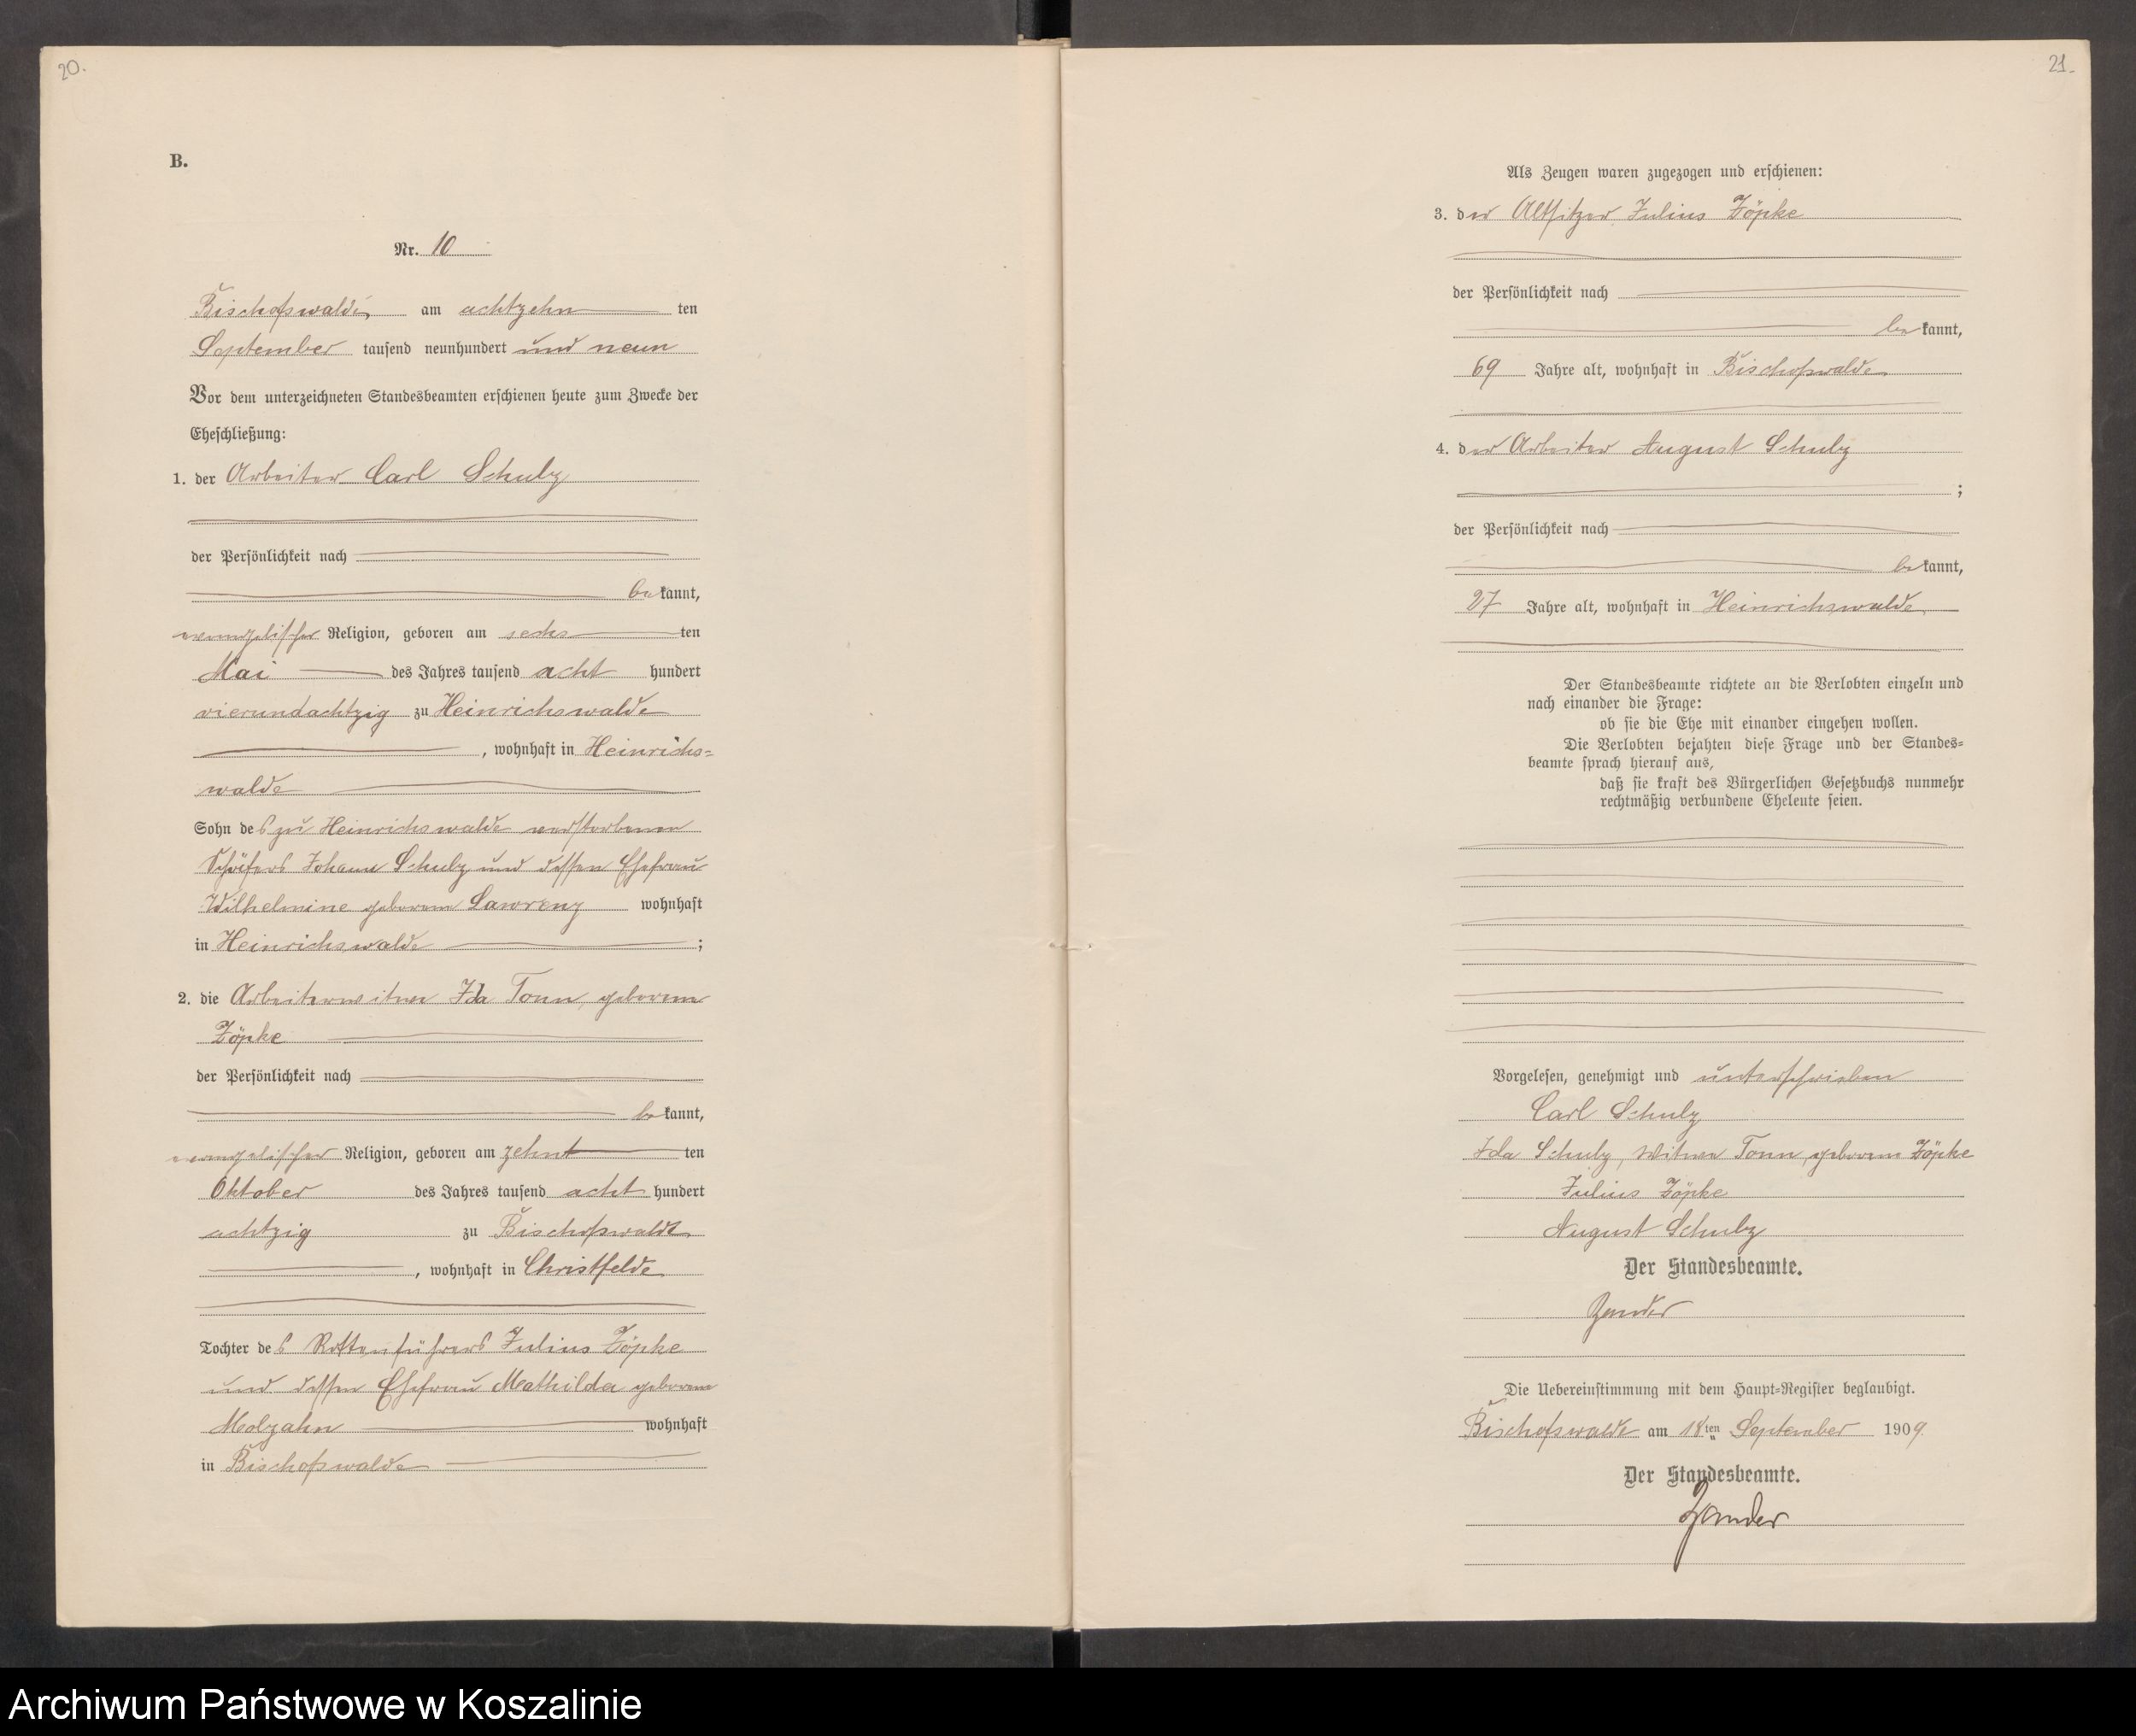 20.
B.
Nr. 10
Bischofswalde, am achtzehn ten
September tausend neunhundert und neun
Vor dem unterzeichneten Standesbeamten erschienen heute zum Zwecke der
Eheschließung:
1. der Arbeiter Carl Schulz
der Persönlichkeit nach
bekannt,
evangelischer Religion, geboren am sechs ten
Mai des Jahres tausend acht hundert
vierundachtzig zu Heinrichswalde
, wohnhaft in Heinrichs=
walde
Sohn des zu Heinrichswalde verstorbenen
Schäfers Johann Schulz und dessen Ehefrau
Wilhelmine geborene Lawrenz wohnhaft
in Heinrichswalde ;
2. die Arbeiterwitwe Ida Tonn, geborene
Zöpke
der Persönlichkeit nach
bekannt,
evangelischer Religion, geboren am zehnt ten
Oktober des Jahres tausend acht hundert
achtzig zu Bischofswalde
, wohnhaft in Christfelde
Tochter des Rottenführers Julius Zöpke
und dessen Ehefrau Mathilde geborene
Molzahn wohnhaft
in Bischofswalde
21.
Als Zeugen waren zugezogen und erschienen:
3. der Altsitzer Julius Zöpke
der Persönlichkeit nach
bekannt,
69 Jahre alt, wohnhaft in Bischofswalde
4. der Arbeiter August Schulz
;
der Persönlichkeit nach
bekannt,
27 Jahre alt, wohnhaft in Heinrichswalde
Der Standesbeamte richtete an die Verlobten einzeln und
nach einander die Frage:
ob sie die Ehe mit einander eingehen wollen.
Die Verlobten bejahten diese Frage und der Standes=
beamte sprach hierauf aus,
daß sie kraft des Bürgerlichen Gesetzbuchs nunmehr
rechtmäßig verbundene Eheleute seien.
Vorgelesen, genehmigt und unterschrieben
Carl Schulz
Ida Schulz, Witwe Tonn, geborene Zöpke
Julius Zöpke
August Schulz
Der Standesbeamte.
Zander
Die Uebereinstimmung mit dem Haupt=Register beglaubigt.
Bischofswalde am 18ten September 1909.
Der Standesbeamte.
Zander
Archiwum Państwowe w Koszalinie